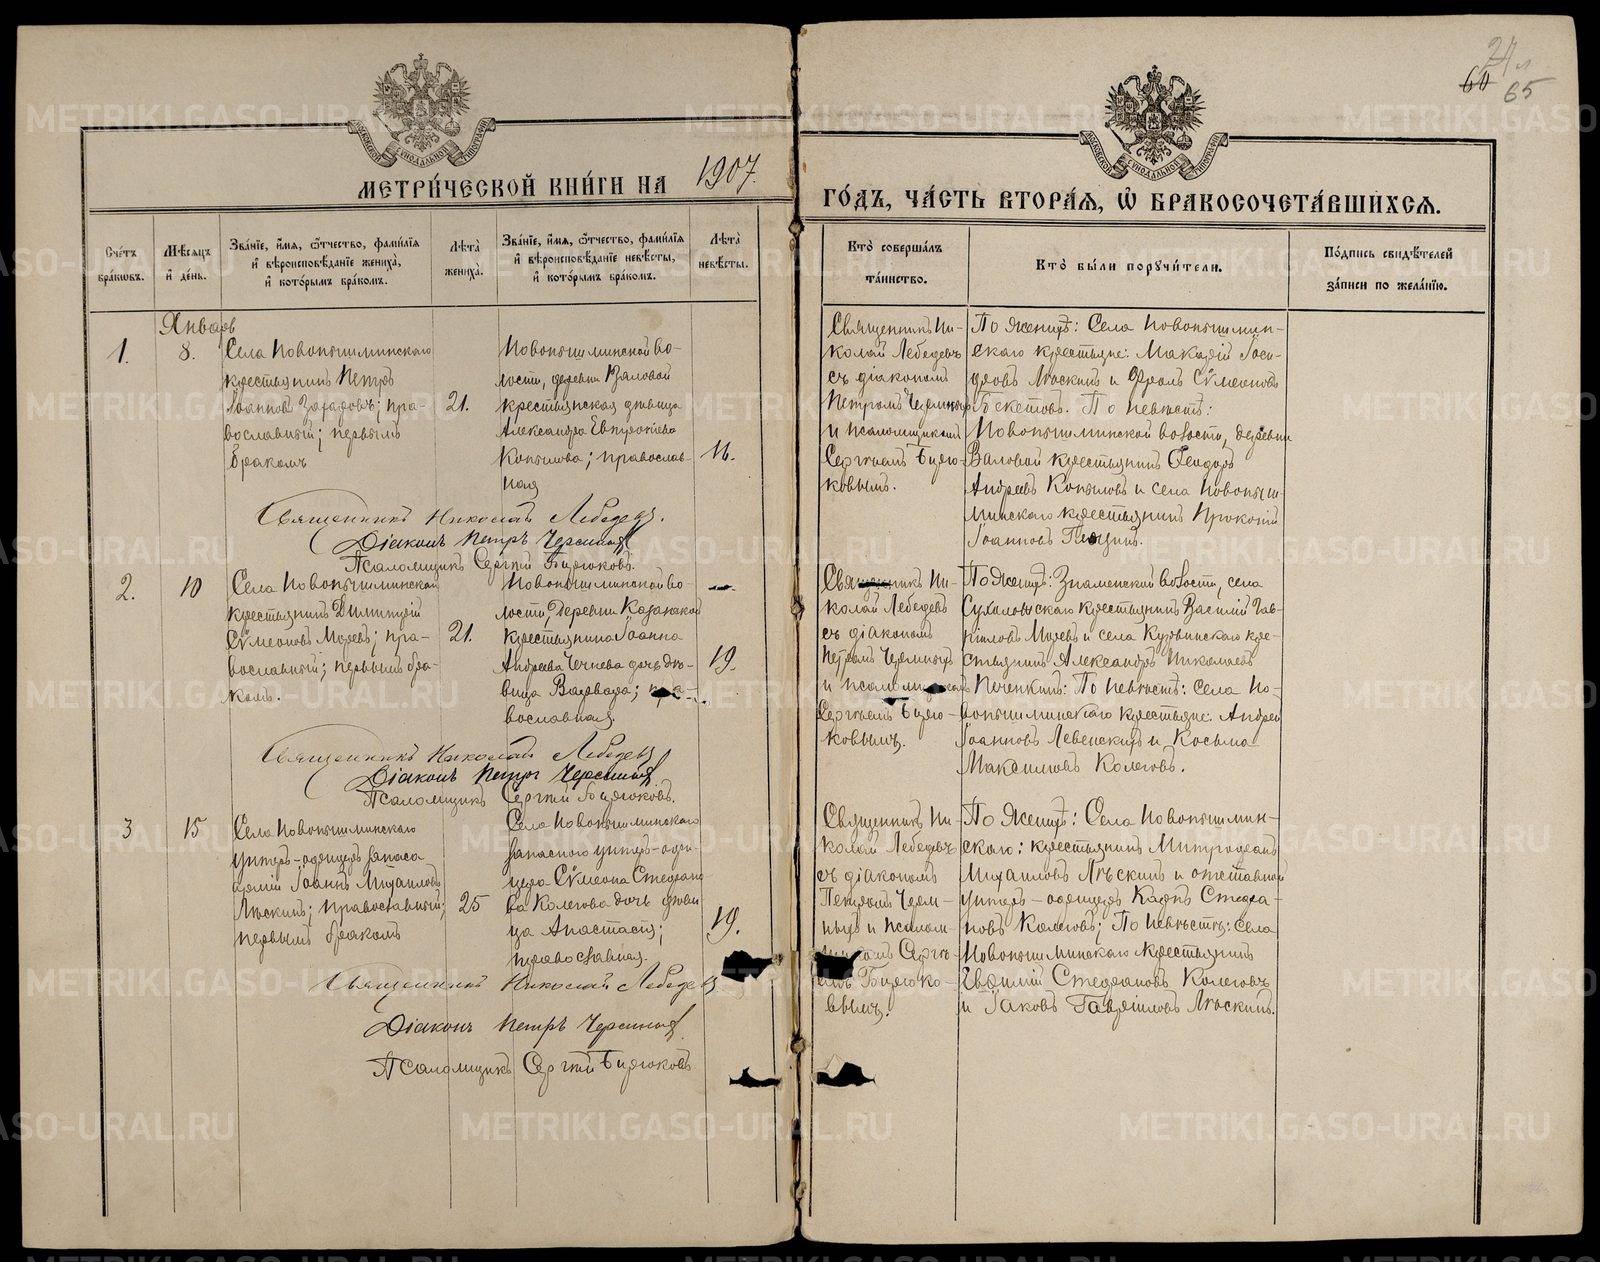 24 л
60 65
МЕТРИ́ЧЕСКОЙ КНИ́ГИ НА 1907.
ГО́ДЪ, ЧА́СТЬ ВТОРА́Я, Ѿ БРАКОСОЧЕТА́ВШИХСЯ.
Сче́тъ браковъ.
Мѣ́сяцъ и день.
Зва́нїе, и́мя, ѻ́тчество, фами́лїя
и вѣроисповѣ́данїе жениха̀,
и кото́рымъ бра́комъ.
Лѣта̀ жениха̀.
Зва́нїе, и́мя, ѻ́тчество, фами́лїя
и вѣроисповѣ́данїе невѣ́сты,
и кото́рымъ бра́комъ.
Лѣта̀ невѣ́сты.
Кто̀ соверша́лъ
та́инство.
Кто̀ бы́ли порꙋчи́тели.
По́дпись свидѣ́телей
за́писи по жела́нїю.
Январь
1. 8.
Села Новопышминскаго
крестьянинъ Петръ
Іоанновъ; пра-
вославный; первымъ
бракомъ
21.
Новопышминской во-
лости, деревни
крестьянская дѣвица
Александра
Копылова; православ-
ная
16.
Священникъ Ни-
колай Лебедевъ
съ діакономъ
Петромъ
и псаломщикомъ
Сергіемъ Бирю-
ковымъ.
По женихѣ: Села Новопышмин-
скаго крестьяне: Макарій
Лѣскинъ и Фролъ Сѵмеоновъ
Бекетовъ. По невѣстѣ:
Новопышминской волости, деревни
крестьянинъ Ѳеодоръ
Андреевъ Копыловъ и села Новопыш-
минскаго крестьянинъ Прокопій
Іоанновъ
Священникъ Николай Лебедевъ.
Діаконъ Петръ
Псаломщикъ Сергій Бирюковъ.
2. 10
Села Новопышминскаго
крестьянинъ Димитрій
Сѵмеоновъ; пра-
вославный; первымъ бра-
комъ.
21.
Новопышминской во-
лости, деревни
крестьянина Іоанна
Андреева дочь дѣ-
вица Варвара; пра-
вославная.
19.
Священникъ Ни-
колай Лебедевъ
съ діакономъ
Петромъ
и псаломщикомъ
Сергіемъ Бирю-
ковымъ.
По женихѣ: Знаменской волости, села
Сухоложскаго крестьянинъ Василій Гав-
риловъ и села кре-
стьянинъ Александръ Николаевъ
По невѣстѣ: Села Но-
вопышминскаго крестьяне: Андрей
Іоанновъ и Косьма
Максимовъ Колеговъ.
Священникъ Николай Лебедевъ
Діаконъ Петръ
Псаломщикъ Сергій Бирюковъ.
3 15
Села Новопышминскаго
унтеръ-офицеръ запаса
арміи Іоаннъ Михаиловъ
Лѣскинъ; православный;
первымъ бракомъ
25
Села Новопышминскаго
запаснаго унтеръ-офи-
цера Сѵмеона Стефано-
ва Колегова дочь дѣви-
ца Анастасія;
православная.
19.
Священникъ Ни-
колай Лебедевъ
съ діакономъ
Петромъ
и псалом-
щикомъ Сергі-
емъ Бирюко-
вымъ.
По женихѣ: Села Новопышмин-
скаго: крестьянинъ Митрофанъ
Михаиловъ Лѣскинъ и отставной
унтеръ-офицеръ Карпъ Стефа-
новъ Колеговъ; По невѣстѣ: села
Новопышминскаго крестьянинъ
Евфимій Стефановъ Колеговъ
и Іаковъ Гавріиловъ Лѣскинъ.
Священникъ Николай Лебедевъ
Діаконъ Петръ
Псаломщикъ Сергій Бирюковъ
METRIKI.GASO-URAL.RU